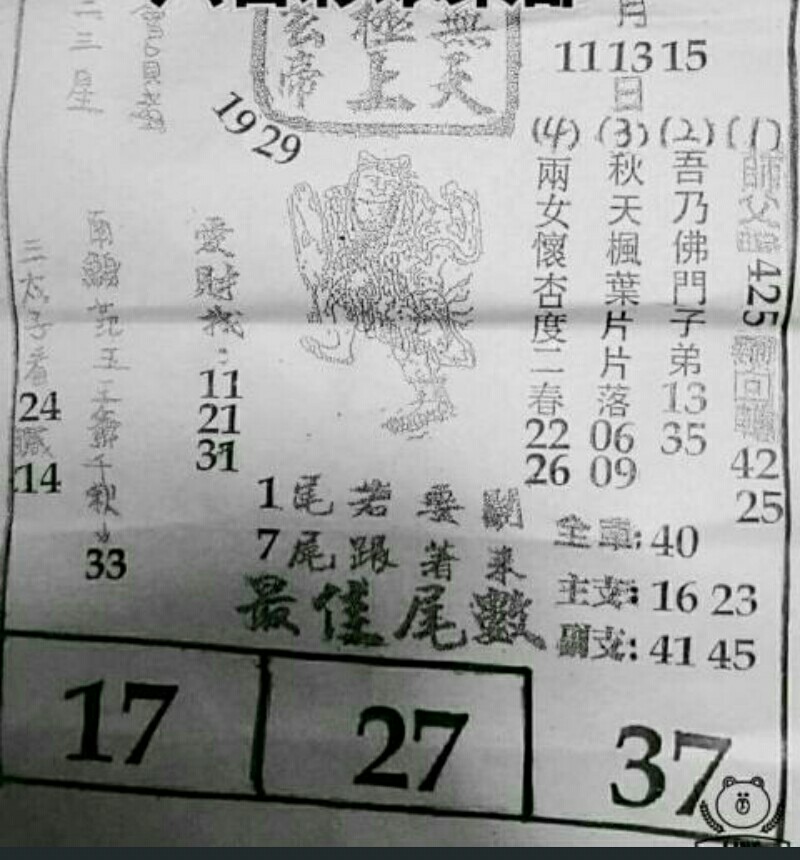 月
11 13 15
日
無天
極上
玄帝
1929
(1)
師父
425
42
25
(2)
吾乃佛門子弟
13
35
(3)
秋天楓葉片片落
06
09
(4)
兩女懷杏度二春
22
26
愛財找:
11
21
31
二三星
三太子看
24
14
33
1尾若要開
7尾跟著來
最佳尾數
全車:40
主支:16 23
副支:41 45
17
27
37